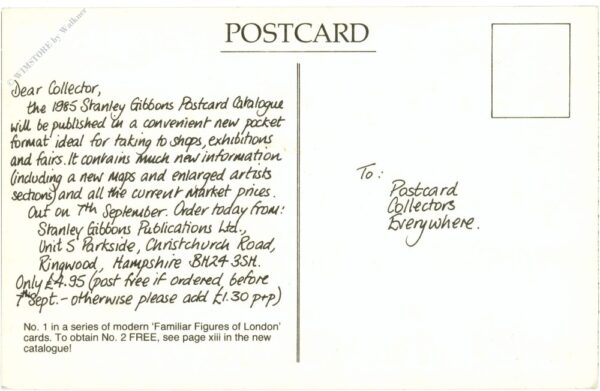 © WIMSTORE by Walkner
POSTCARD
Dear Collector,
the 1985 Stanley Gibbons Postcard Catalogue
will be published in a convenient new pocket
format ideal for taking to shops, exhibitions
and fairs. It contains much new information
(including a new maps and enlarged artists
sections) and all the current market prices.
Out on 7th September. Order today from:
Stanley Gibbons Publications Ltd.,
Unit 5 Parkside, Christchurch Road,
Ringwood, Hampshire BH24 3SH.
Only £4.95 (post free if ordered before
7th Sept. - otherwise please add £1.30 p+p)
No. 1 in a series of modern 'Familiar Figures of London'
cards. To obtain No. 2 FREE, see page xiii in the new
catalogue!
To:
Postcard
Collectors
Everywhere.